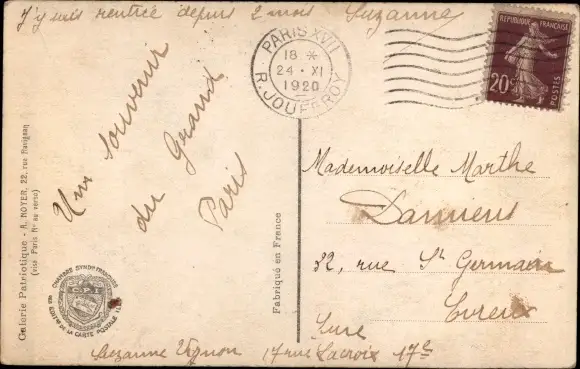 J'y suis rentrée depuis 2 mois Suzanne
PARIS XVII
18 *
24 · XI
1920
R. JOUFFROY
REPUBLIQUE FRANÇAISE
20c
POSTES
Un souvenir
du Grand
Paris
Mademoiselle Marthe
Damiens
32, rue St Germain
Evreux
Eure
Suzanne Vignon 17 rue Lacroix 17e
Fabriqué en France
Galerie Patriotique - A. NOYER, 22, rue Ravignan
(visé Paris No au verso)
CHAMBRE SYNDle FRANÇAISE
DES EDITrs DE LA CARTE POSTALE ILLée